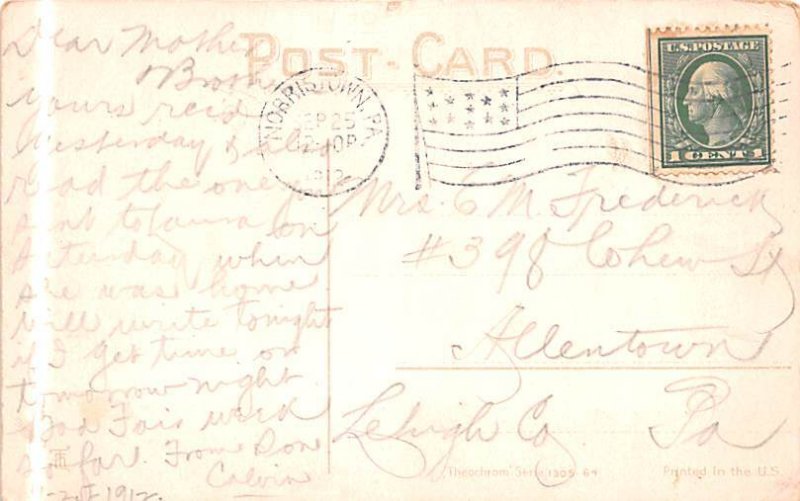 POST-CARD.
Dear Mother
& Brother
yours rec'd
yesterday & also
read the one
sent to Laura on
Saturday when
she was home
will write tonight
if I get time or
tomorrow night
Good Fair week
so far. From Son
Calvin
1912.
NORRISTOWN, PA.
SEP 25
1912
U.S. POSTAGE
1 CENT 1
Mrs. C M Frederick
#398 Cohew St
Allentown
Lehigh Co Pa
"Theochrom" Serie 1305-64
Printed in the U.S.